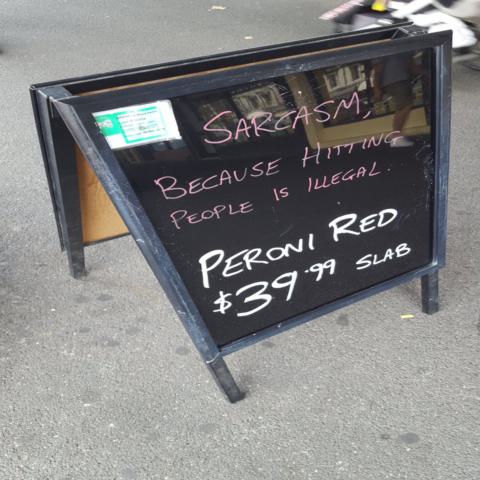 SARCASM,
BECAUSE HITTING
PEOPLE IS ILLEGAL.
PERONI RED
$39.99 SLAB